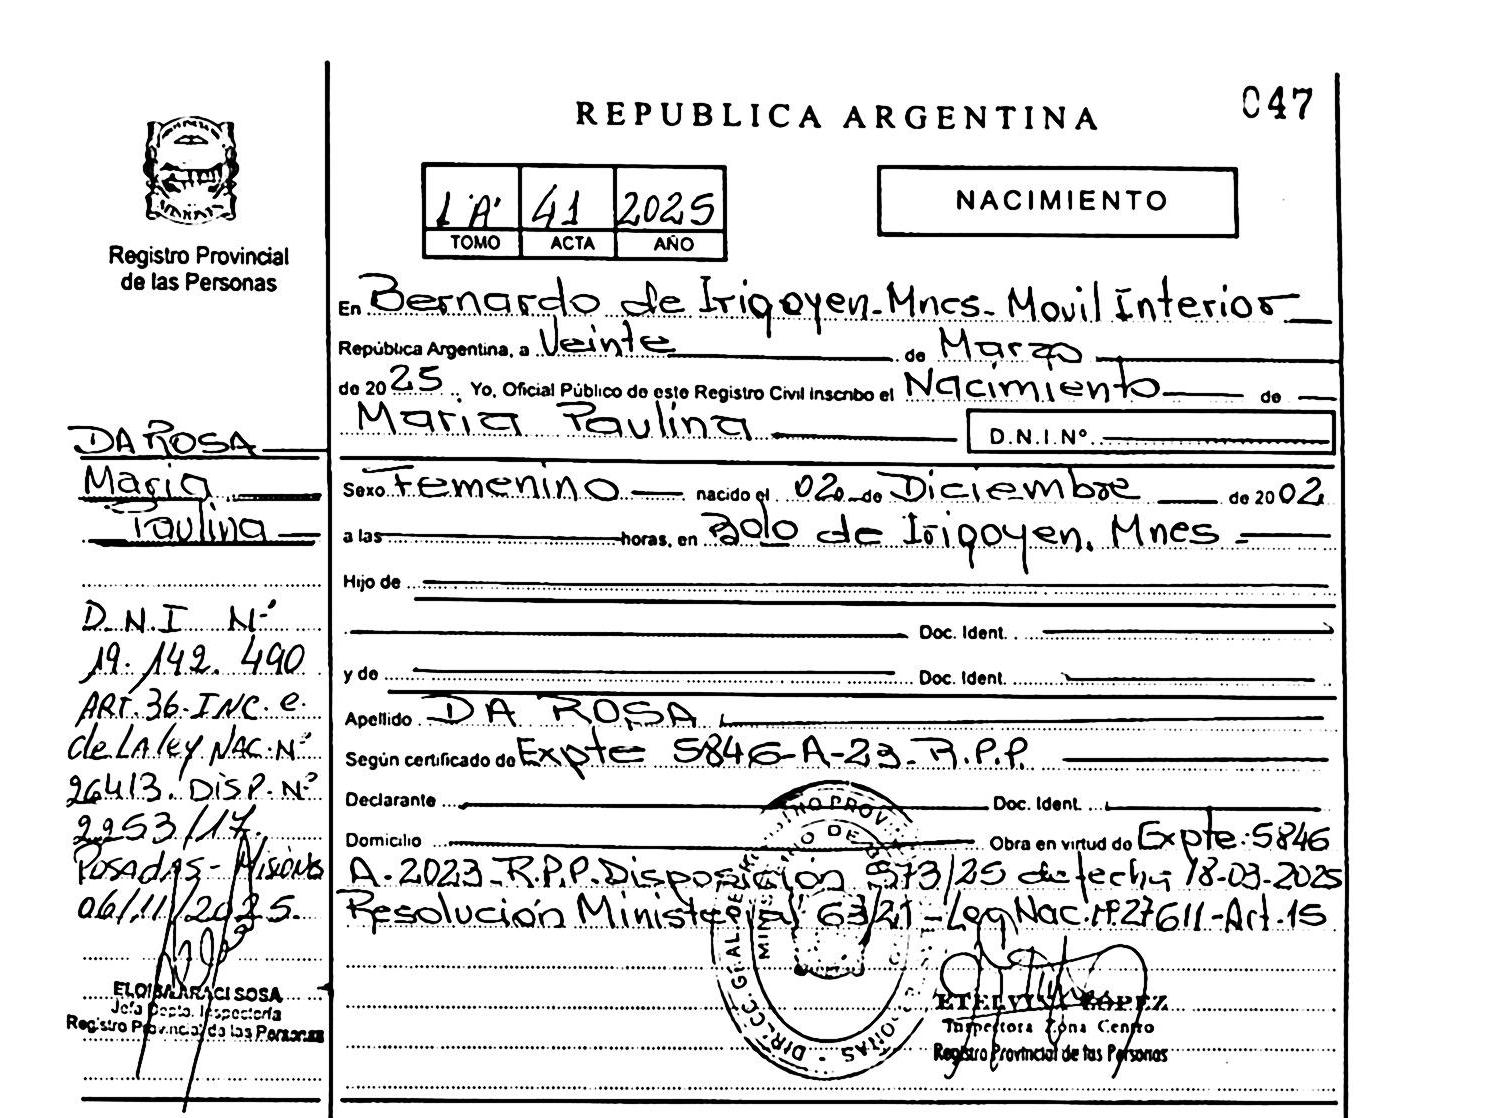 047
REPUBLICA ARGENTINA
1 "A" 41 2025
TOMO ACTA AÑO
NACIMIENTO
Registro Provincial
de las Personas
En Bernardo de Irigoyen-Mnes- Movil Interior
República Argentina, a Veinte de Marzo
de 2025 Yo, Oficial Público de este Registro Civil inscribo el Nacimiento de
Maria Paulina D.N.I.Nº
Sexo Femenino nacido el 02 de Diciembre de 2002
a las horas, en Bdo de Irigoyen. Mnes
Hijo de
Doc. Ident.
y de Doc. Ident.
Apellido DA ROSA
Según certificado de Expte 5846-A-23-R.P.P.
Declarante Doc. Ident.
Domicilio Obra en virtud de Expte:5846
A-2023-R.P.P.Disposición 573/25 de fecha 18-03-2025
Resolución Ministerial 63/21-Leg Nac.Nº27611-Art.15
ETELVINA LOPEZ
Inspectora Zona Centro
Registro Provincial de las Personas
DA ROSA
Maria
Paulina
D.N.I Nº
19.142.490
ART.36-INC.e.
de LA ley NAC.Nº
26413. DISP.Nº
2253/17.
POSADAS-Misiones
06/11/2025.
ELOISA ARACI SOSA
Jefa Depto. Inspectoría
Registro Provincial de las Personas